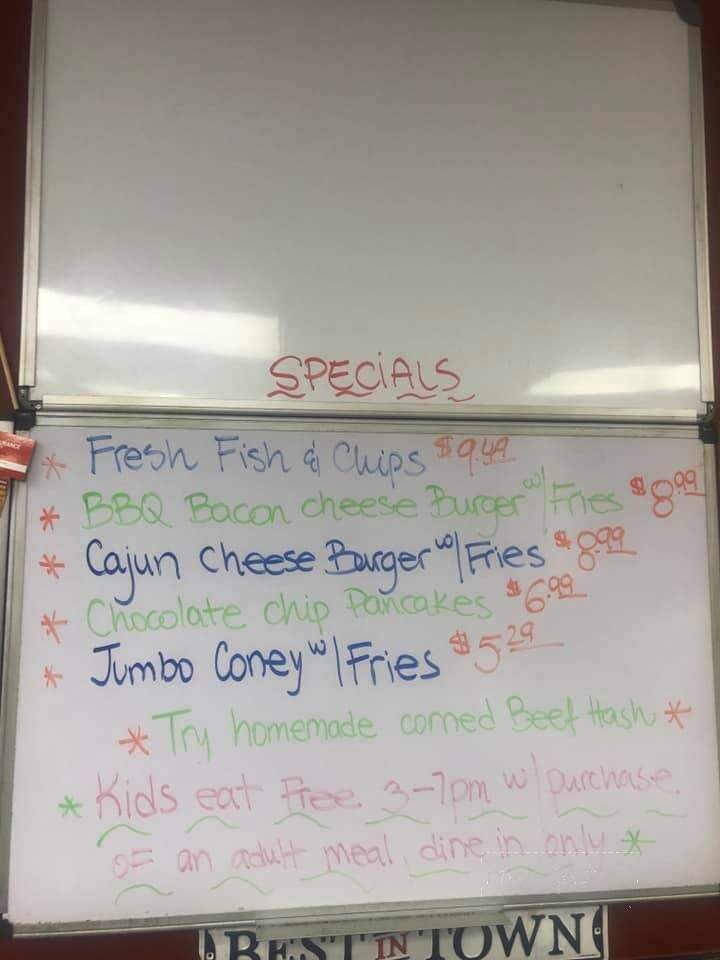 SPECiALS
* Fresh Fish & Chips $9.49
* BBQ Bacon cheese Burger w/ Fries $8.99
* Cajun Cheese Burger w/ Fries $8.99
* Chocolate chip Pancakes $6.99
* Jumbo Coney w/ Fries $5.29
* Try homemade corned Beef Hash *
* Kids eat Free 3-7pm w/ purchase
OF an adult meal, dine in only *
BEST IN TOWN